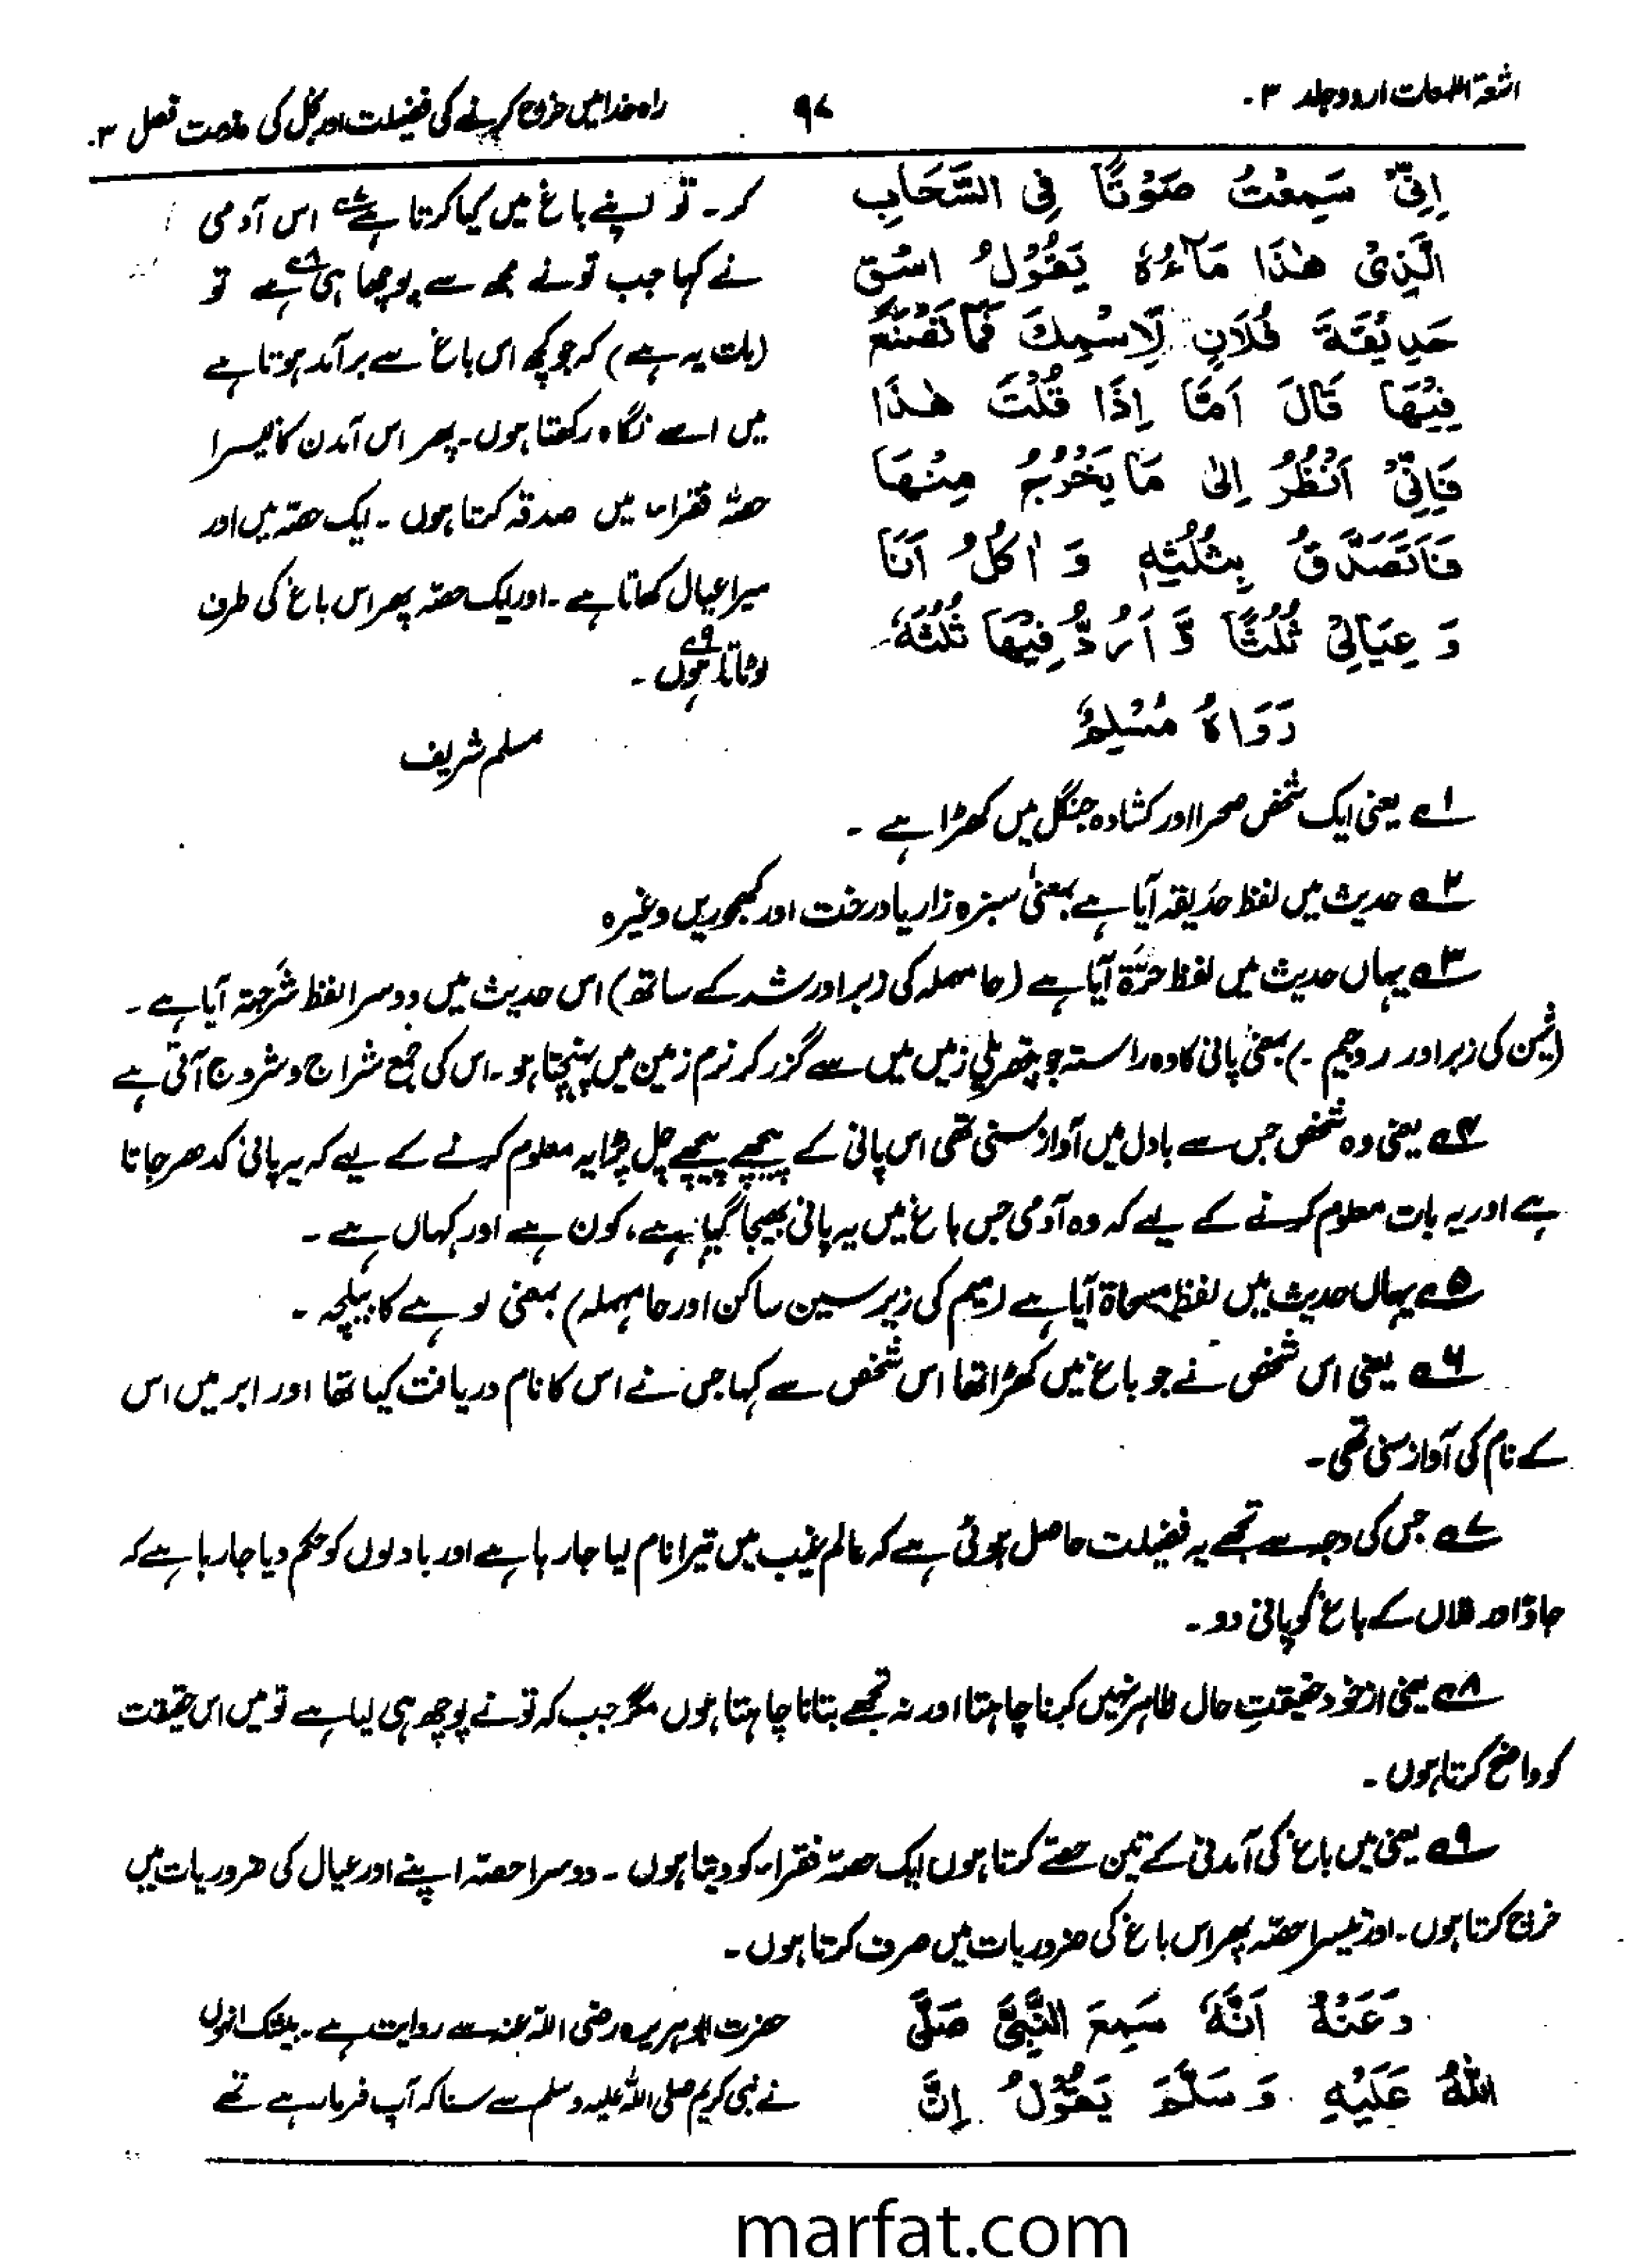 اشعۃ اللمعات اردو جلد ۳۔
۹۷
راہ خدا میں خرچ کرنے کی فضیلت اور بخل کی مذمت فصل ۳۔
اِنِّیْ سَمِعْتُ صَوْتًا فِی السَّحَابِ
الَّذِیْ ھٰذَا مَآءُہٗ یَقُوْلُ اسْقِ
حَدِیْقَةَ فُلَانٍ لِّاسْمِكَ فَمَا تَصْنَعُ
فِیْھَا قَالَ اَمَّا اِذَا قُلْتَ ھٰذَا
فَاِنِّیْ اَنْظُرُ اِلٰی مَا یَخْرُجُ مِنْھَا
فَاَتَصَدَّقُ بِثُلُثِہٖ وَ اٰکُلُ اَنَا
وَ عِیَالِیْ ثُلُثًا وَّ اَرُدُّ فِیْھَا ثُلُثَہٗ
رَوَاہُ مُسْلِمٌ
کر۔ تو اپنے باغ میں کیا کرتا ہے؎۷ اس آدمی
نے کہا جب تو نے مجھ سے پوچھا ہی ہے؎۸ تو
(بات یہ ہے) کہ جو کچھ اس باغ سے برآمد ہوتا ہے
میں اسے نگاہ رکھتا ہوں۔ پھر اس آمدن کا تیسرا
حصّہ فقراء میں صدقہ کرتا ہوں۔ ایک حصّہ میں اور
میرا عیال کھاتا ہے۔ اور ایک حصّہ پھر اس باغ کی طرف
لوٹاتا ہوں؎۹۔
مسلم شریف
؎۱ یعنی ایک شخص صحرا اور کشادہ جنگل میں کھڑا ہے۔
؎۲ حدیث میں لفظ حدیقہ آیا ہے بمعنیٰ سبزہ زار یا درخت اور کھجوریں وغیرہ
؎۳ یہاں حدیث میں لفظ حرّۃ آیا ہے (حا مہملہ کی زبر اور شد کے ساتھ) اس حدیث میں دوسرا لفظ شرجۃ آیا ہے۔
(شین کی زبر اور ر و جیم۔) بمعنیٰ پانی کا وہ راستہ جو پتھریلی زمیں میں سے گزر کر نرم زمین میں پہنچتا ہو۔ اس کی جمع شراج و شروج آتی ہے
؎۴ یعنی وہ شخص جس سے بادل میں آواز سنی تھی اس پانی کے پیچھے پیچھے چل پڑا یہ معلوم کرنے کے لیے کہ یہ پانی کدھر جاتا
ہے اور یہ بات معلوم کرنے کے لیے کہ وہ آدمی جس باغ میں یہ پانی بھیجا گیا ہے، کون ہے اور کہاں ہے۔
؎۵ یہاں حدیث میں لفظ مسحاۃ آیا ہے (میم کی زیر سین ساکن اور حا مہملہ) بمعنی لوہے کا بیلچہ۔
؎۶ یعنی اس شخص نے جو باغ میں کھڑا تھا اس شخص سے کہا جس نے اس کا نام دریافت کیا تھا اور ابر میں اس
کے نام کی آواز سنی تھی۔
؎۷ جس کی وجہ سے تجھے یہ فضیلت حاصل ہوئی ہے کہ عالم غیب میں تیرا نام لیا جا رہا ہے اور بادلوں کو حکم دیا جا رہا ہے کہ
جاؤ اور فلاں کے باغ کو پانی دو۔
؎۸ یعنی از خود حقیقتِ حال ظاہر نہیں کرنا چاہتا اور نہ تجھے بتانا چاہتا ہوں مگر جب کہ تو نے پوچھ ہی لیا ہے تو میں اس حقیقت
کو واضح کرتا ہوں۔
؎۹ یعنی میں باغ کی آمدنی کے تین حصّے کرتا ہوں ایک حصّہ فقراء کو دیتا ہوں۔ دوسرا حصّہ اپنے اور عیال کی ضروریات میں
خرچ کرتا ہوں۔ اور تیسرا حصّہ پھر اس باغ کی ضروریات میں صرف کرتا ہوں۔
وَعَنْہُ اَنَّہٗ سَمِعَ النَّبِیَّ صَلَّی
اللہُ عَلَیْہِ وَسَلَّمَ یَقُوْلُ اِنَّ
حضرت ابوہریرہ رضی اللہ عنہ سے روایت ہے۔ بیشک انہوں
نے نبی کریم صلی اللہ علیہ وسلم سے سنا کہ آپ فرما رہے تھے
marfat.com